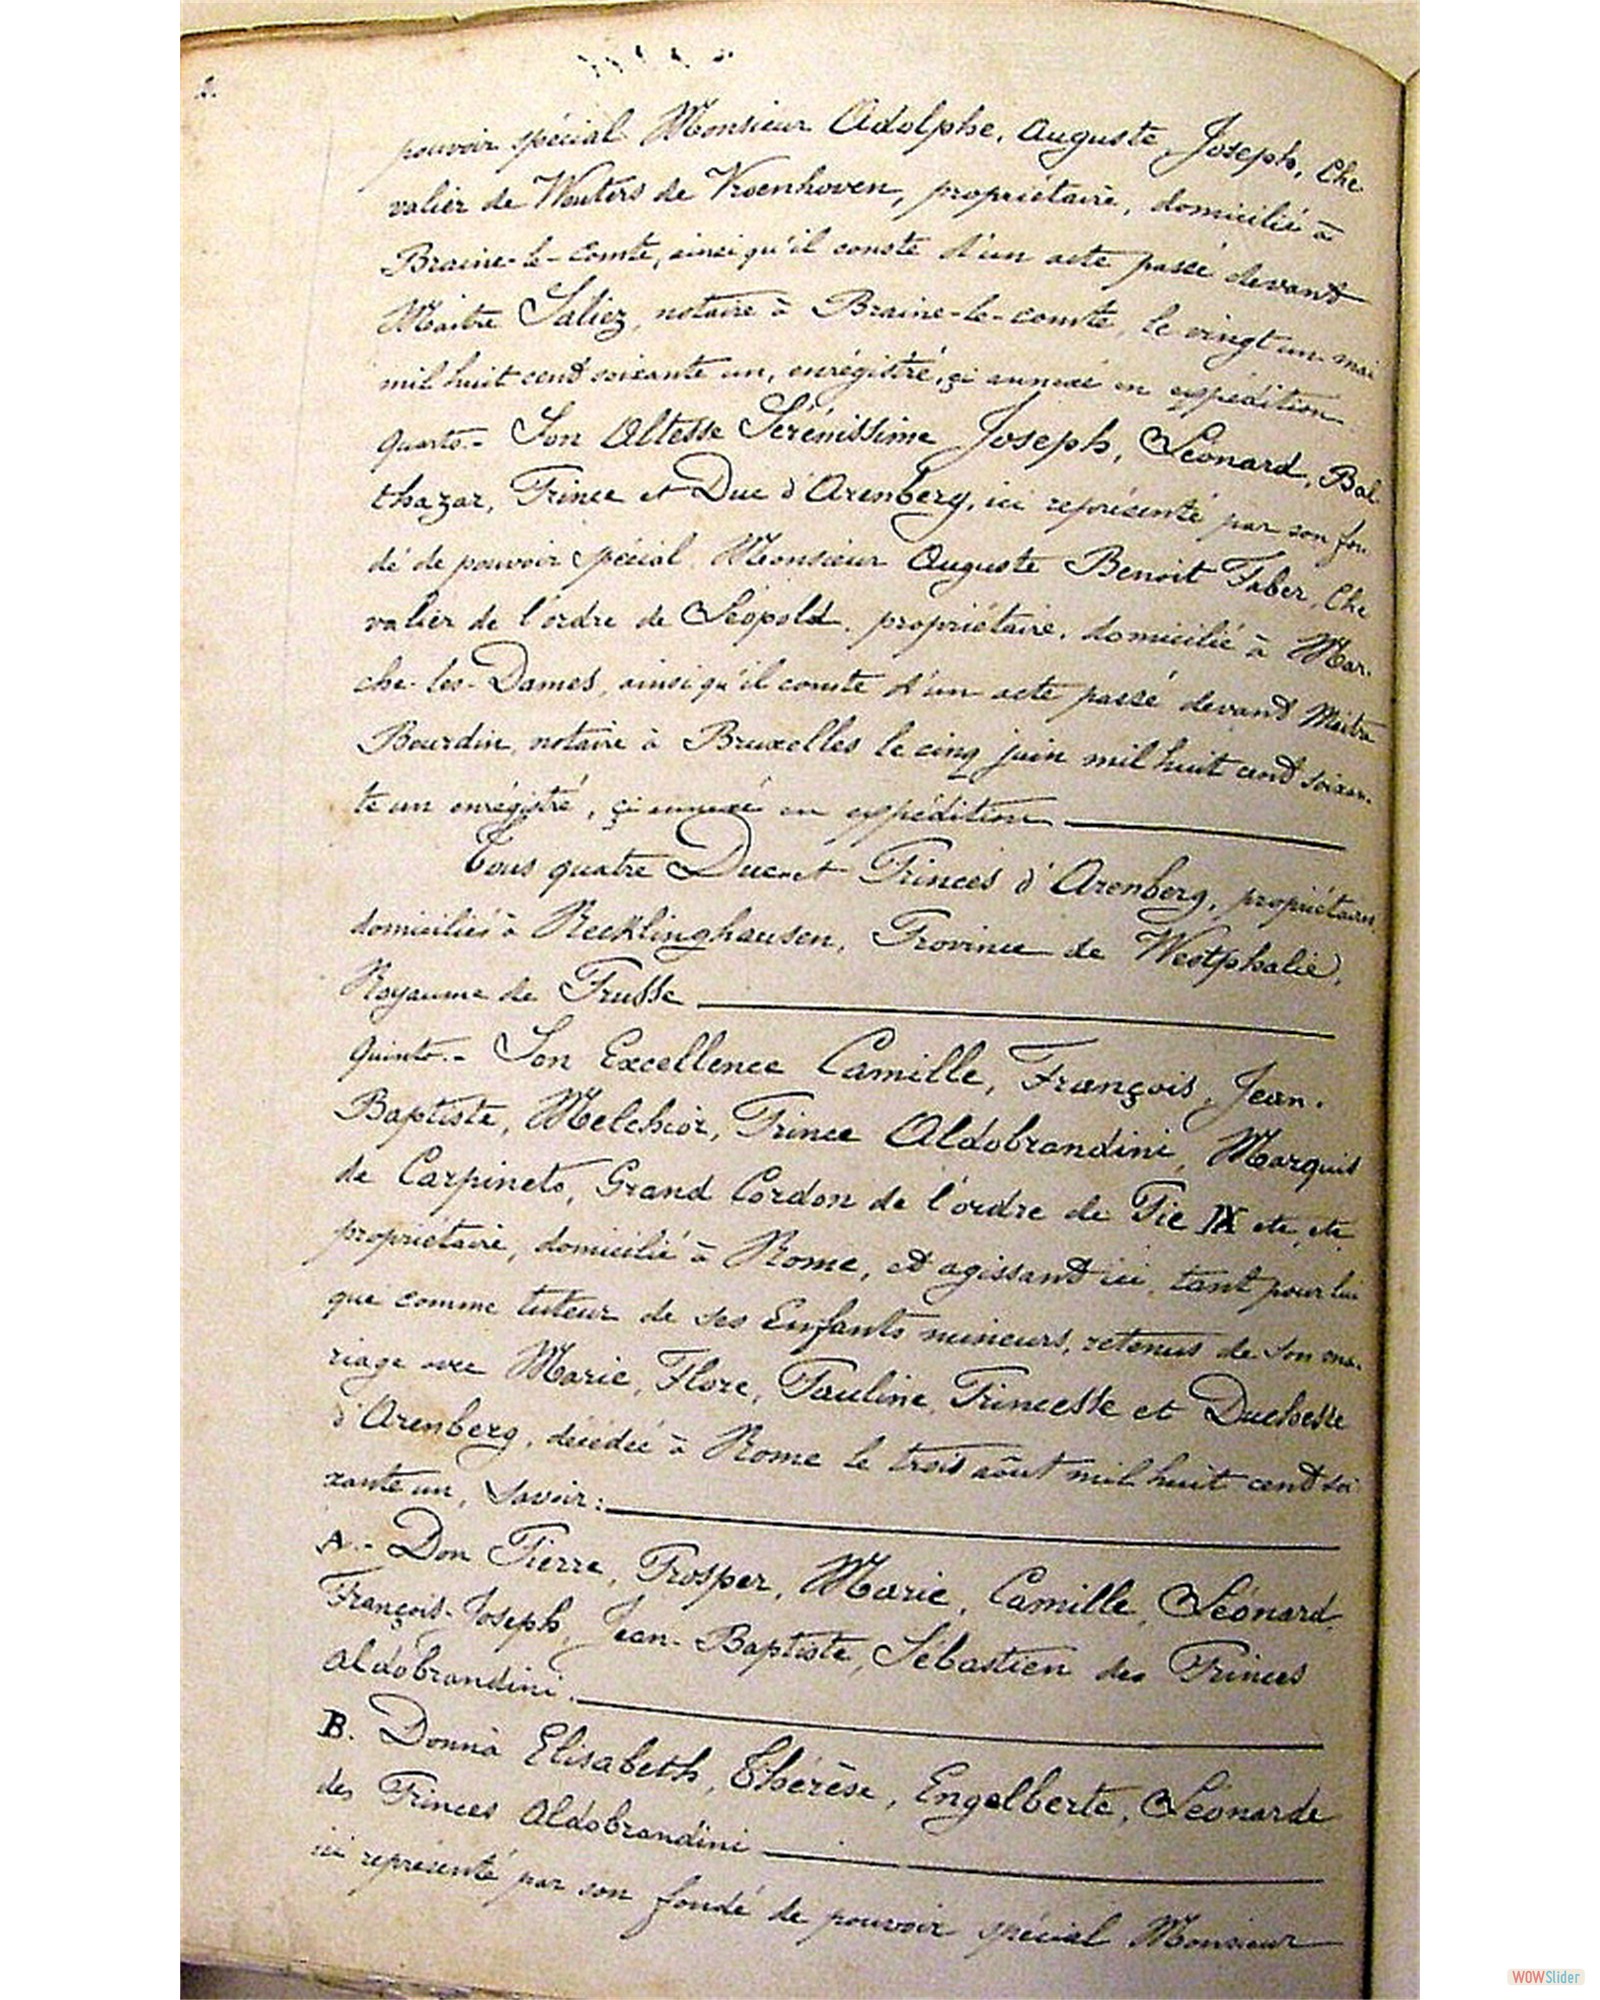 2.
pouvoir spécial Monsieur Adolphe, Auguste, Joseph, Che
valier de Wouters de Vroenhoven, propriétaire, domicilié à
Braine-le-Comte, ainsi qu'il conste d'un acte passé devant
Maître Saliez, notaire à Braine-le-comte, le vingt un mai
mil huit cent soixante un, enrégistré, çi annexé en expédition
Quarto.- Son Altesse Sérénissime Joseph, Léonard, Bal
thazar, Prince et Duc d'Arenberg, ici représenté par son fon
dé de pouvoir spécial, Monsieur Auguste Benoit Faber, Che
valier de l'ordre de Léopold, propriétaire, domicilié à Mar-
che-les-Dames, ainsi qu'il conste d'un acte passé devant Maître
Bourdin, notaire à Bruxelles le cinq juin mil huit cent soixan-
te un enrégistré, çi annexé en expédition
Tous quatre Ducs et Princes d'Arenberg, propriétaires,
domiciliés à Recklinghausen, Province de Westphalie,
Royaume de Prusse
Quinto.- Son Excellence Camille, François, Jean-
Baptiste, Melchior, Prince Aldobrandini, Marquis
de Carpineto, Grand Cordon de l'ordre de Pie IX etc, etc,
propriétaire, domicilié à Rome, et agissant ici, tant pour lui
que comme tuteur de ses Enfants mineurs, retenus de son ma-
riage avec Marie, Flore, Pauline, Princesse et Duchesse
d'Arenberg, décédée à Rome le trois aôut mil huit cent soi
xante un, savoir:
A.- Don Pierre, Prosper, Marie, Camille, Léonard,
François-Joseph, Jean-Baptiste, Sébastien des Princes
Aldobrandini.
B. Donnà Elisabeth, Thérèse, Engelberte, Léonarde
des Princes Aldobrandini
ici représenté par son fondé de pouvoir spécial Monsieur
WOWSlider